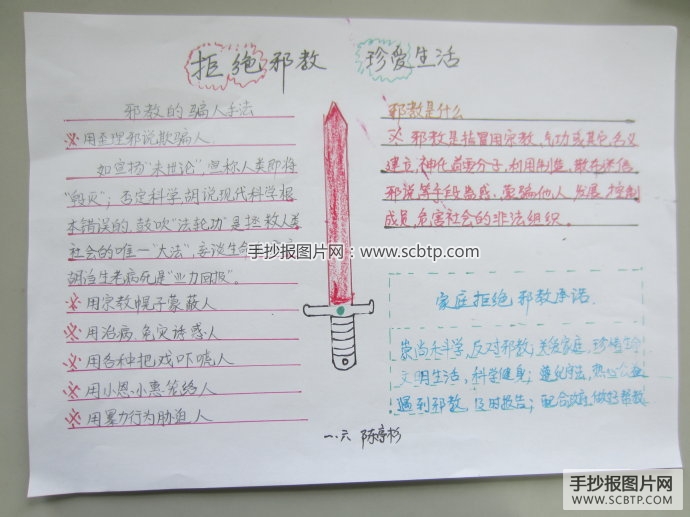 拒绝邪教 珍爱生活
邪教的骗人手法
※用歪理邪说欺骗人
如宣扬“末世论”,宣称人类即将
“毁灭”;否定科学,胡说现代科学根
本错误的,鼓吹“法轮功”是拯救人类
社会的唯一“大法”,妄谈生命
胡诌生老病死是“业力回报”。
※用宗教幌子蒙蔽人
※用治病、免灾诱惑人
※用各种把戏吓唬人
※用小恩小惠笼络人
※用暴力行为胁迫人
邪教是什么
※邪教是指冒用宗教、气功或其它名义
建立,神化首要分子,利用制造、散布迷信
邪说等手段蛊惑、蒙骗他人,发展、控制
成员,危害社会的非法组织。
家庭拒绝邪教承诺
崇尚科学,反对邪教;关爱家庭,珍惜生命
文明生活,科学健身;遵纪守法,热心公益
遇到邪教,及时报告;配合政府,做好帮教
一、六 陈
手抄报图片网:www.scbtp.com
手抄报图片网
WWW.SCBTP.COM